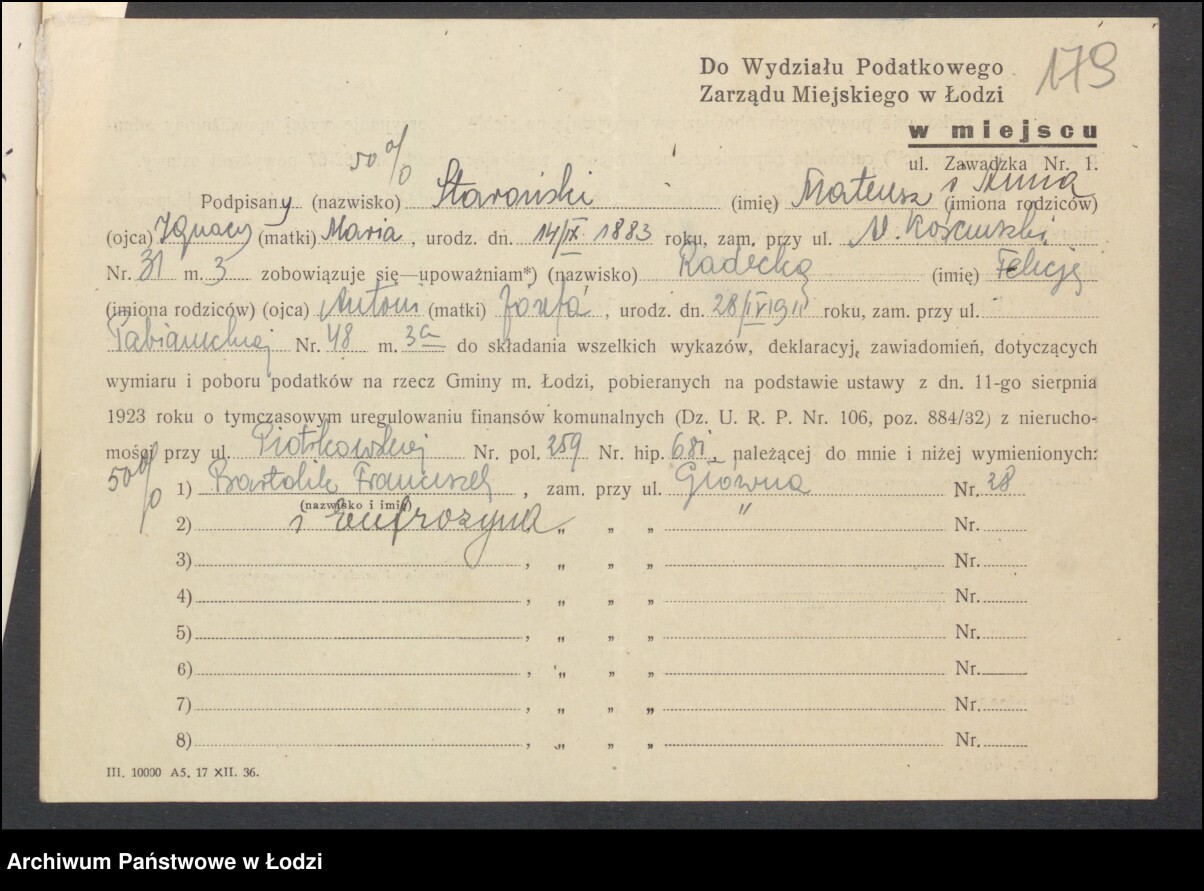 179
Do Wydziału Podatkowego
Zarządu Miejskiego w Łodzi
w miejscu
ul. Zawadzka Nr. 1.
50%
Podpisany (nazwisko) Staroński (imię) Mateusz i Anna (imiona rodziców)
(ojca) Ignacy (matki) Maria, urodz. dn. 14/IX 1883 roku, zam. przy ul. N. Kościuszki
Nr. 31 m. 3 zobowiązuje się—upoważniam*) (nazwisko) Radecką (imię) Felicję
(imiona rodziców) (ojca) Antoni (matki) Józefa, urodz. dn. 28/IV 1911 roku, zam. przy ul.
Pabianickiej Nr. 48 m. 3a do składania wszelkich wykazów, deklaracyj, zawiadomień, dotyczących
wymiaru i poboru podatków na rzecz Gminy m. Łodzi, pobieranych na podstawie ustawy z dn. 11-go sierpnia
1923 roku o tymczasowym uregulowaniu finansów komunalnych (Dz. U. R. P. Nr. 106, poz. 884/32) z nierucho-
mości przy ul. Piotrkowskiej Nr. pol. 259 Nr. hip. 681, należącej do mnie i niżej wymienionych:
50%
1) Bartolik Franciszek, zam. przy ul. Główna Nr. 28
(nazwisko i imię)
2) i Eufrozyna „ „ „ " Nr.
3) , „ „ „ Nr.
4) , „ „ „ Nr.
5) , „ „ „ Nr.
6) , „ „ „ Nr.
7) , „ „ „ Nr.
8) , „ „ „ Nr.
III. 10000 A5. 17 XII. 36.
Archiwum Państwowe w Łodzi